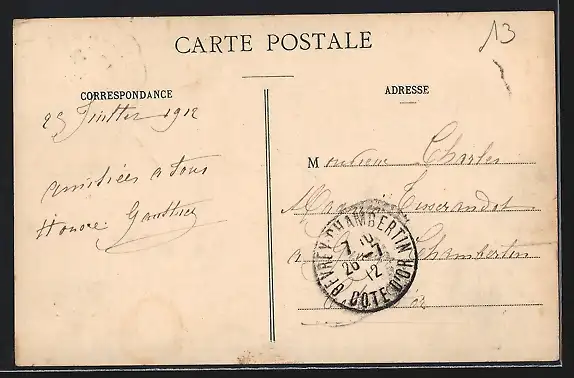 13
CARTE POSTALE
CORRESPONDANCE
25 Juillet 1912
amitiées a tous
Honoré Gauthier
ADRESSE
Monsieur Charles
Tisserandot
a Chambertin
GEVREY-CHAMBERTIN
26 -7
12
COTE D'OR